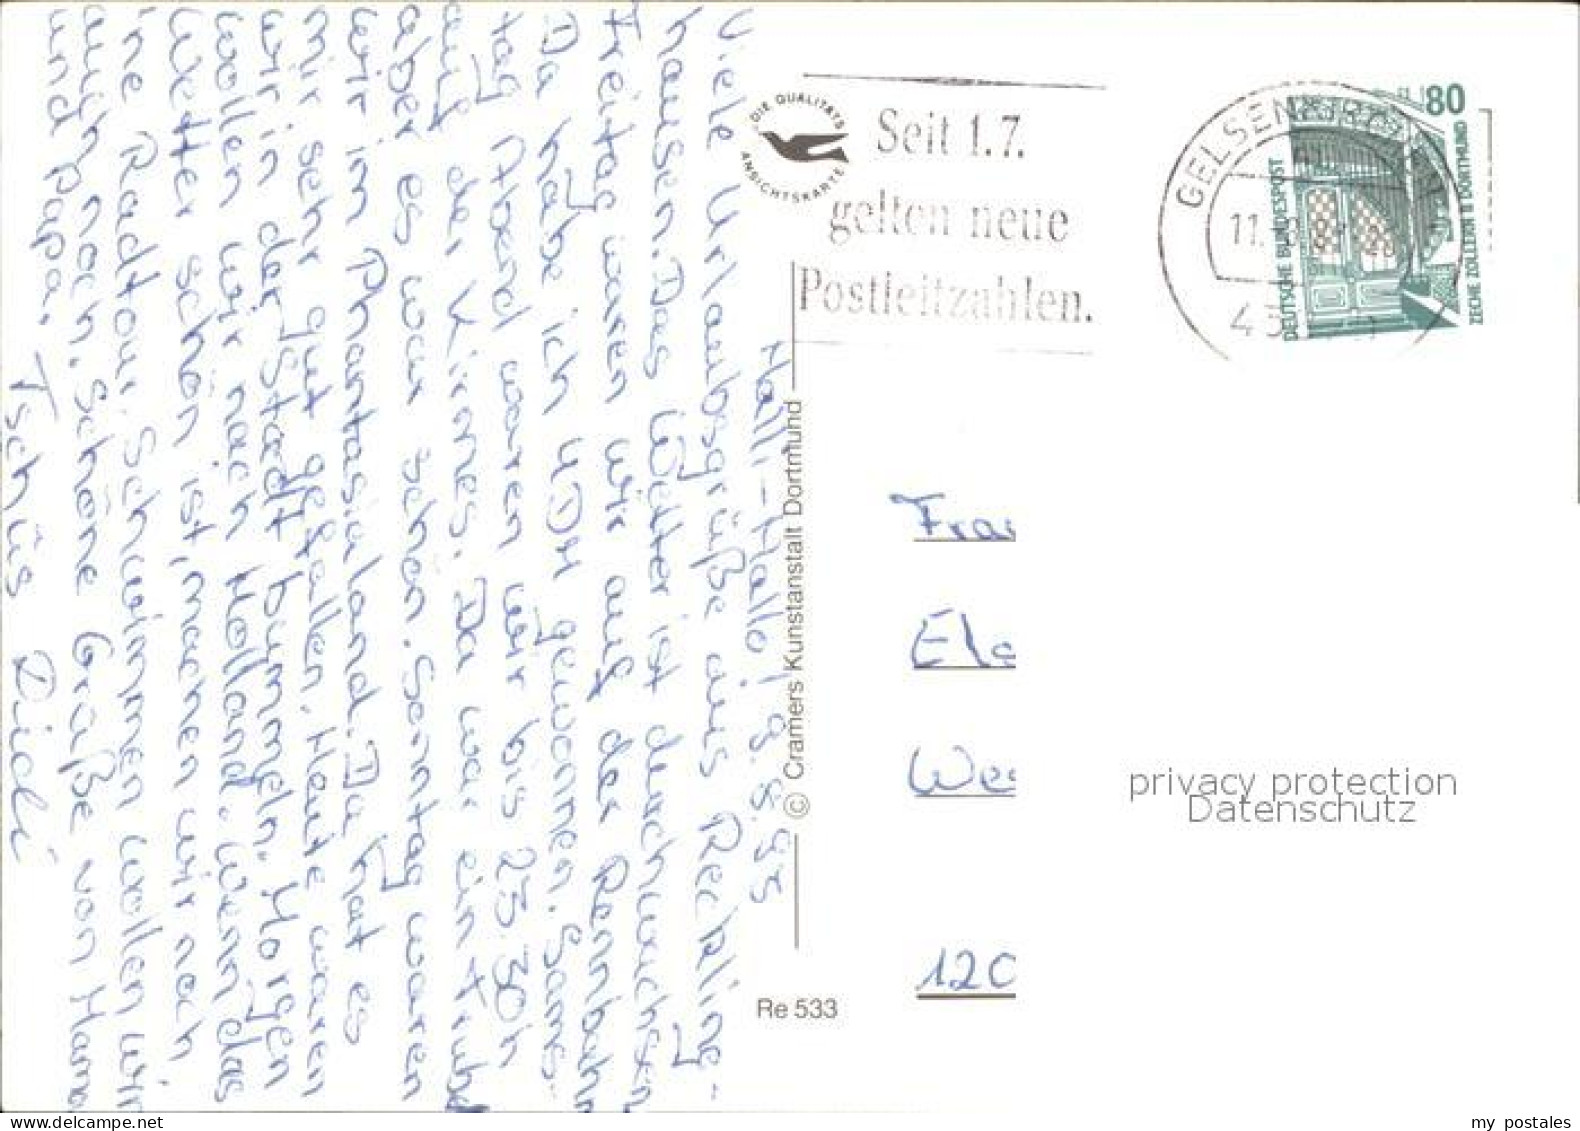 Halli-Hallo! 9.8.93
Viele Urlaubsgrüße aus Reckling-
hausen. Das Wetter ist durchwachsen
Freitag waren wir auf der Rennbahn
Da habe ich 4DM gewonnen. Sams-
tag Abend waren wir bis 23.30h
auf der Kirmes. Da war ein Trubel
aber es war schön. Sonntag waren
wir im Phantasialand. Da hat es
mir sehr gut gefallen. Heute waren
wir in der Stadt bummeln. Morgen
wollen wir nach Holland. Wenn das
Wetter schön ist, machen wir noch
ine Radtour. Schwimmen wollen wir
auch noch. Schöne Grüße von Mama
und Papa.
Tschüs Didi
DIE QUALITÄTS
ANSICHTSKARTE
© Cramers Kunstanstalt Dortmund
Re 533
Seit 1.7.
gelten neue
Postleitzahlen.
GELSENKIRCHEN
11.
80
DEUTSCHE BUNDESPOST
ZECHE ZOLLERN II DORTMUND
Frau
Els
Wes
120
privacy protection
Datenschutz
www.delcampe.net
my postales